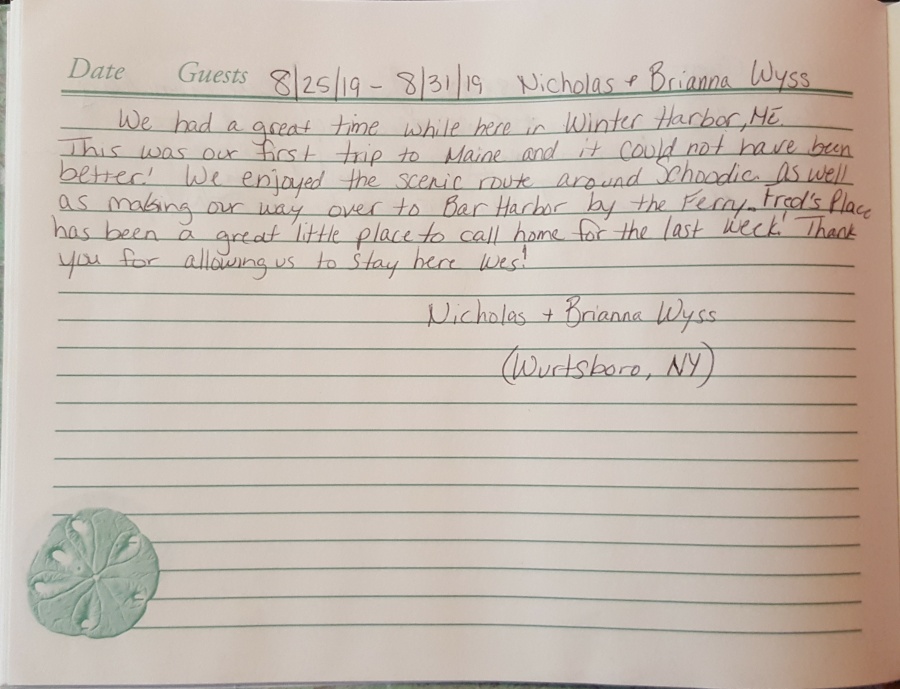 Date Guests 8/25/19 - 8/31/19 Nicholas + Brianna Wyss
We had a great time while here in Winter Harbor, ME.
This was our first trip to Maine and it could not have been
better! We enjoyed the scenic route around Schoodic as well
as making our way over to Bar Harbor by the Ferry. Fred's Place
has been a great little place to call home for the last week! Thank
you for allowing us to stay here Wes!
Nicholas + Brianna Wyss
(Wurtsboro, NY)